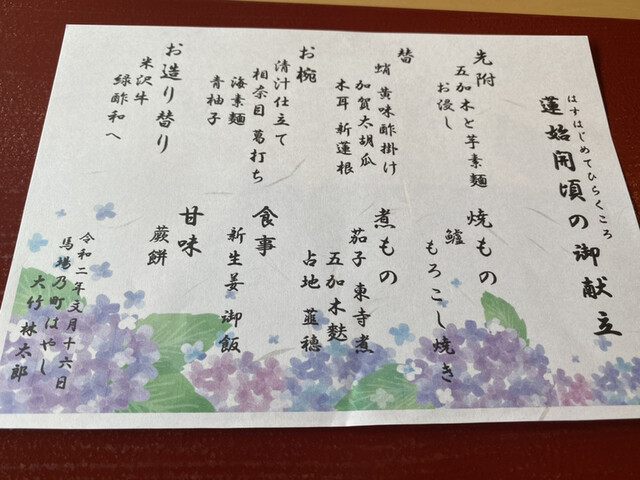 はすはじめてひらくころ
蓮始開頃の御献立
先附
五加木と芋素麺
お浸し
替
蛸 黄味酢掛け
加賀太胡瓜
木耳 新蓮根
お椀
清汁仕立て
相奈目 葛打ち
海素麺
青柚子
お造り替り
米沢牛
緑酢和へ
焼もの
鱸
もろこし焼き
煮もの
茄子 東寺煮
五加木麩
占地 韮穂
食事
新生姜御飯
甘味
蕨餅
令和二年文月十六日
馬場乃町はやし
大竹林太郎